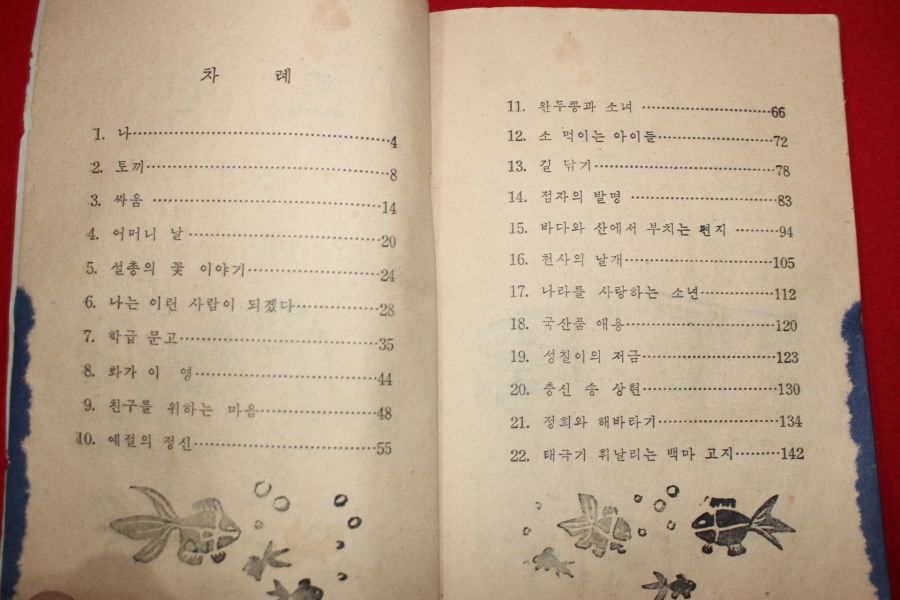 차 례
1. 나……………………………4
2. 토끼……………………………8
3. 싸움……………………………14
4. 어머니 날……………………………20
5. 설총의 꽃 이야기……………………………24
6. 나는 이런 사람이 되겠다……………………………28
7. 학급 문고……………………………35
8. 화가 이 영……………………………44
9. 친구를 위하는 마음……………………………48
10. 예절의 정신……………………………55
11. 완두콩과 소녀……………………………66
12. 소 먹이는 아이들……………………………72
13. 길 닦기……………………………78
14. 점자의 발명……………………………83
15. 바다와 산에서 부치는 편지……………………………94
16. 천사의 날개……………………………105
17. 나라를 사랑하는 소년……………………………112
18. 국산품 애용……………………………120
19. 성칠이의 저금……………………………123
20. 충신 송 상현……………………………130
21. 정희와 해바라기……………………………134
22. 태극기 휘날리는 백마 고지……………………………142